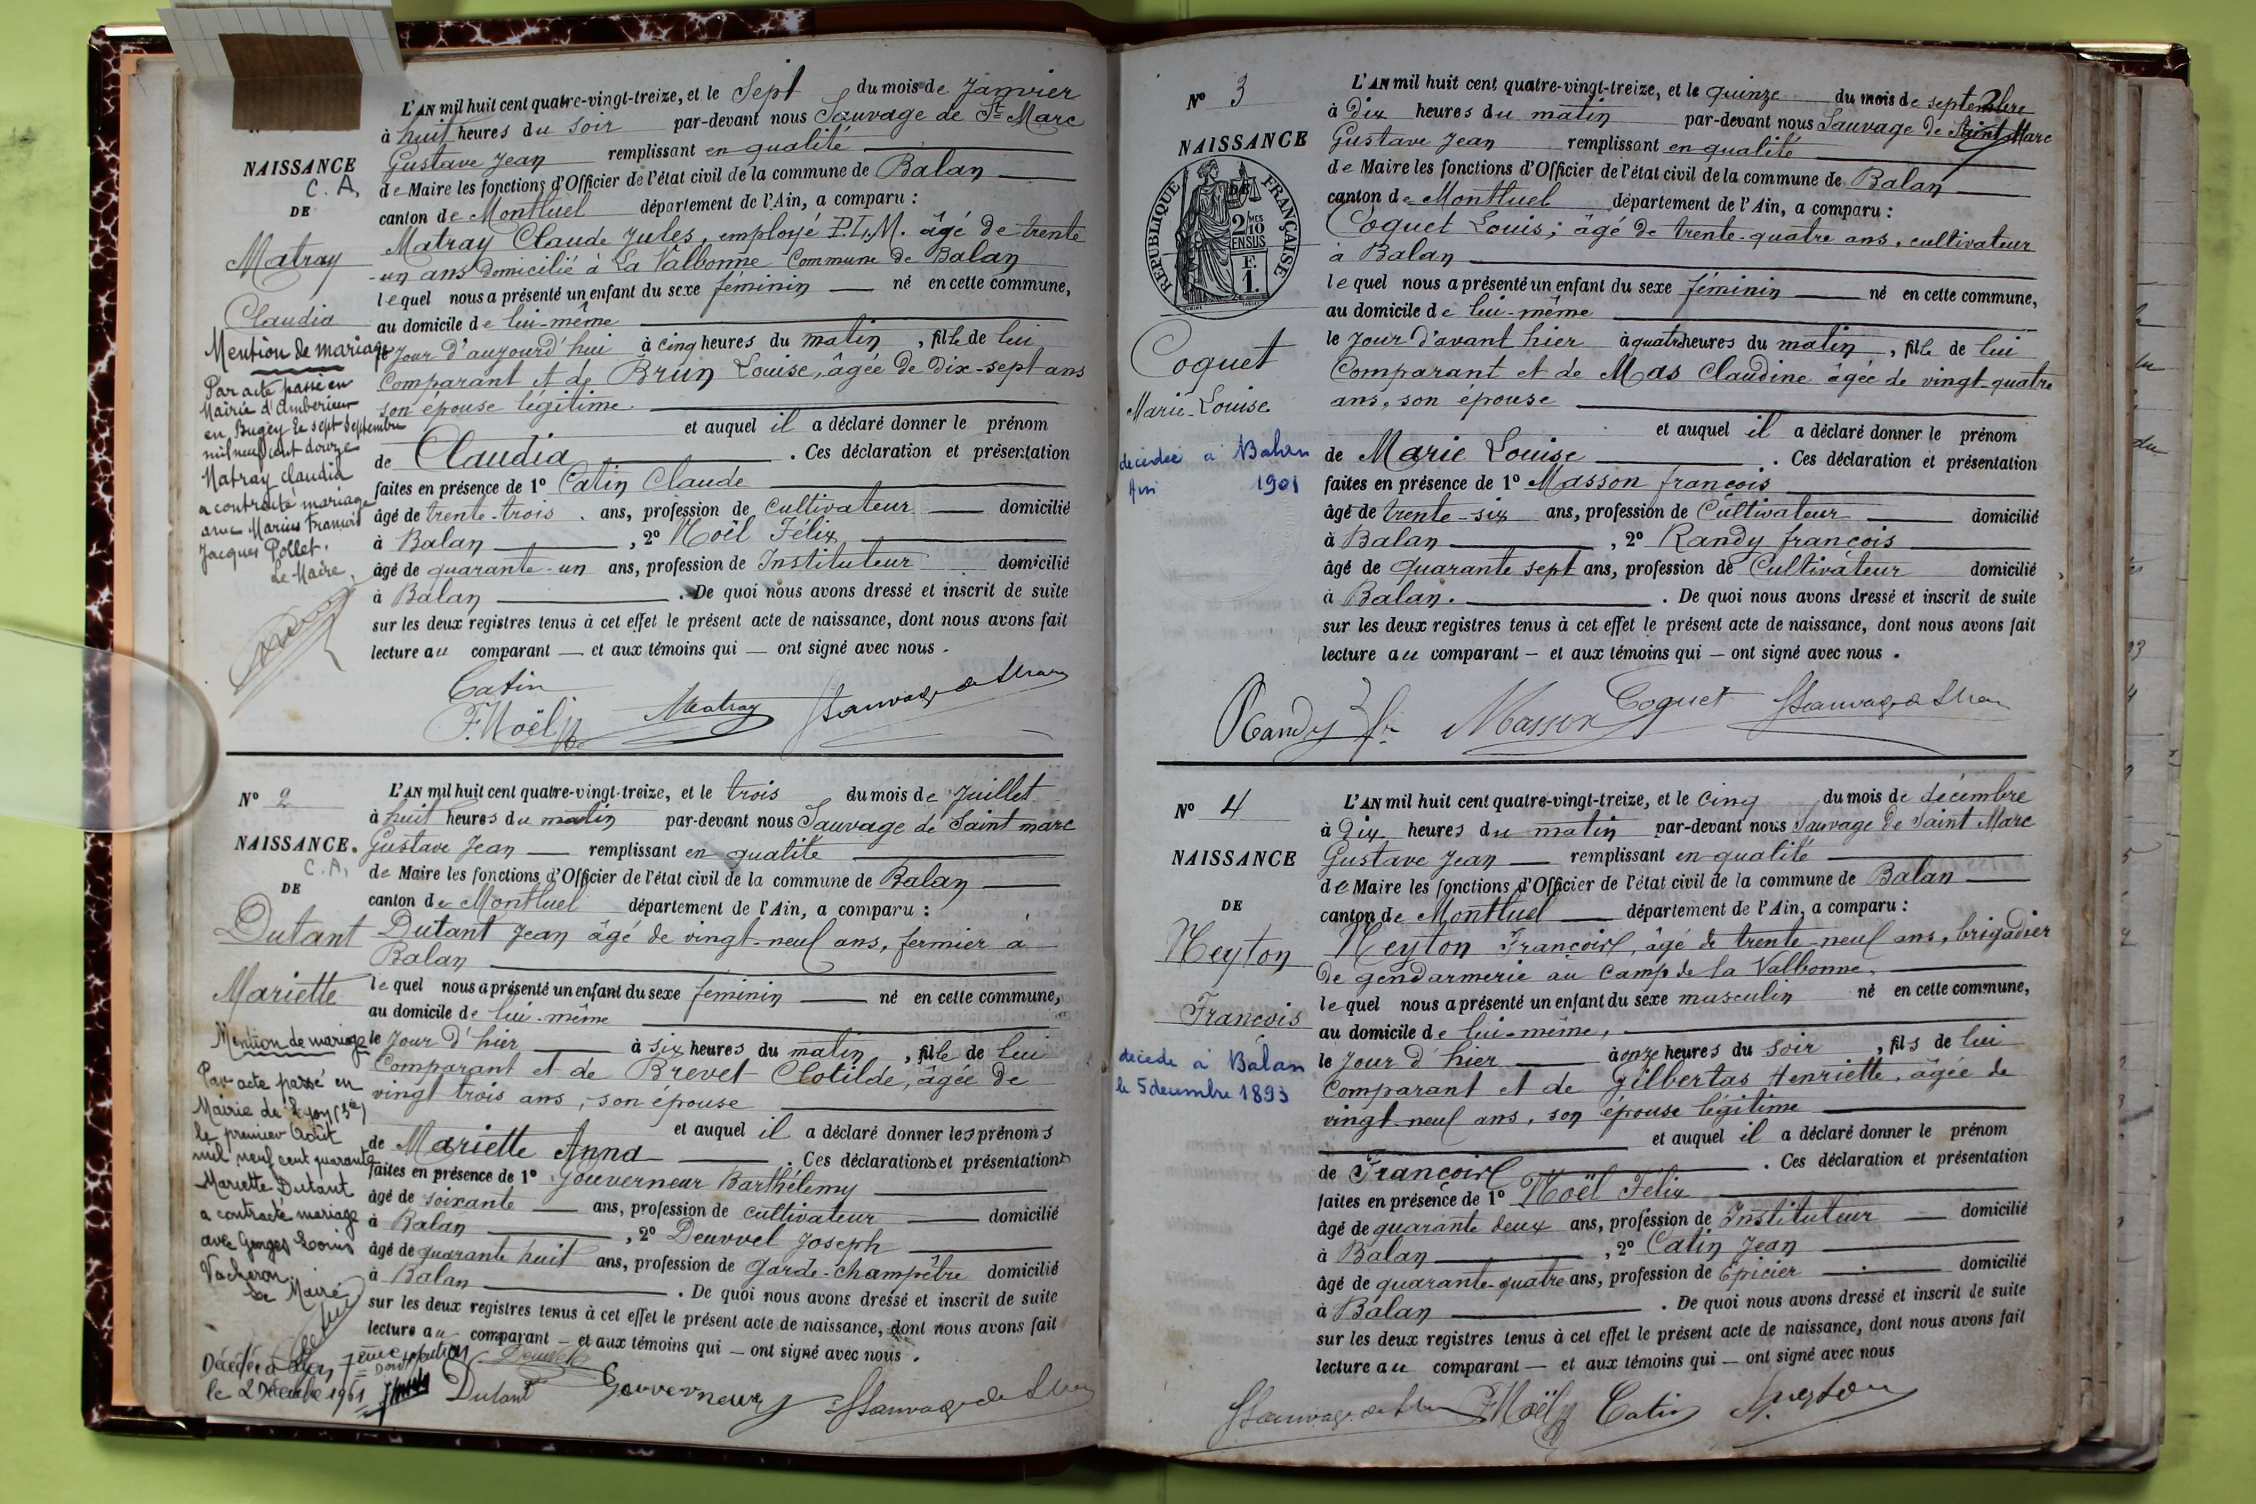 NAISSANCE
C. A.
DE
Matray
Claudia
Mention de mariage
Par acte passé en
Mairie d'Amberieu
en Bugey le sept septembre
mil neuf cent douze
Matray Claudia
a contracté mariage
avec Marius François
Jacques Pollet.
Le Maire,
L'AN mil huit cent quatre-vingt-treize, et le Sept du mois de Janvier
à huit heures du soir par-devant nous Sauvage de St Marc
Gustave Jean remplissant en qualité
de Maire les fonctions d'Officier de l'état civil de la commune de Balan
canton de Montluel département de l'Ain, a comparu :
Matray Claude Jules, employé P.L.M. âgé de trente
-un ans domicilié à La Valbonne Commune de Balan
lequel nous a présenté un enfant du sexe féminin né en cette commune,
au domicile de lui-même
le jour d'aujourd'hui à cinq heures du matin, fille de lui
Comparant et de Brun Louise, âgée de dix-sept ans
son épouse légitime.
et auquel il a déclaré donner le prénom
de Claudia. Ces déclaration et présentation
faites en présence de 1° Catin Claude
âgé de trente-trois ans, profession de cultivateur domicilié
à Balan, 2° Noël Félix
âgé de quarante-un ans, profession de Instituteur domicilié
à Balan. De quoi nous avons dressé et inscrit de suite
sur les deux registres tenus à cet effet le présent acte de naissance, dont nous avons fait
lecture au comparant — et aux témoins qui — ont signé avec nous.
Catin
F. Noël Matray Sauvage de St Marc
N° 2
NAISSANCE.
C. A.
DE
Dutant
Mariette
Mention de mariage
Par acte passé en
Mairie de Lyon (3e)
le premier Août
mil neuf cent quarante
Mariette Dutant
a contracté mariage
avec Georges Louis
Vacheron.
Le Maire
Décédée à Lyon 7ème
le 2 Décembre 1961
L'AN mil huit cent quatre-vingt-treize, et le trois du mois de Juillet
à huit heures du matin par-devant nous Sauvage de Saint marc
Gustave Jean — remplissant en qualité
de Maire les fonctions d'Officier de l'état civil de la commune de Balan
canton de Montluel département de l'Ain, a comparu :
Dutant Jean âgé de vingt-neuf ans, fermier à
Balan
lequel nous a présenté un enfant du sexe féminin né en cette commune,
au domicile de lui-même
le Jour d'hier à six heures du matin, fille de lui
Comparant et de Brevet Clotilde, âgée de
vingt trois ans, son épouse
et auquel il a déclaré donner les prénoms
de Mariette Anna. Ces déclarations et présentations
faites en présence de 1° Gouverneur Barthélemy
âgé de soixante ans, profession de cultivateur domicilié
à Balan, 2° Deuvvel Joseph
âgé de quarante huit ans, profession de garde-champêtre domicilié
à Balan. De quoi nous avons dressé et inscrit de suite
sur les deux registres tenus à cet effet le présent acte de naissance, dont nous avons fait
lecture au comparant — et aux témoins qui — ont signé avec nous.
Dutant Gouverneur Sauvage de St Marc
N° 3
NAISSANCE
DE
RÉPUBLIQUE FRANÇAISE
2/10 MES
EN SUS
F.
1.
Coquet
Marie-Louise
décédée à Balan
Ain 1901
L'AN mil huit cent quatre-vingt-treize, et le quinze du mois de septembre
à dix heures du matin par-devant nous Sauvage de Saint Marc
Gustave Jean remplissant en qualité
de Maire les fonctions d'Officier de l'état civil de la commune de Balan
canton de Montluel département de l'Ain, a comparu :
Coquet Louis ; âgé de trente-quatre ans, cultivateur
à Balan
lequel nous a présenté un enfant du sexe féminin né en cette commune,
au domicile de lui-même
le Jour d'avant hier à quatre heures du matin, fille de lui
Comparant et de Mas Claudine âgée de vingt-quatre
ans, son épouse
et auquel il a déclaré donner le prénom
de Marie Louise. Ces déclaration et présentation
faites en présence de 1° Masson françois
âgé de trente-six ans, profession de Cultivateur domicilié
à Balan, 2° Randy françois
âgé de quarante sept ans, profession de Cultivateur domicilié
à Balan. De quoi nous avons dressé et inscrit de suite
sur les deux registres tenus à cet effet le présent acte de naissance, dont nous avons fait
lecture au comparant — et aux témoins qui — ont signé avec nous.
Randy fr Masson Coquet Sauvage de St Marc
N° 4
NAISSANCE
DE
Neyton
François
décédé à Balan
le 5 decembre 1893
L'AN mil huit cent quatre-vingt-treize, et le cinq du mois de décembre
à dix heures du matin par-devant nous Sauvage de Saint Marc
Gustave Jean — remplissant en qualité
de Maire les fonctions d'Officier de l'état civil de la commune de Balan
canton de Montluel département de l'Ain, a comparu :
Neyton François, âgé de trente-neuf ans, brigadier
de gendarmerie au camp de la Valbonne,
lequel nous a présenté un enfant du sexe masculin né en cette commune,
au domicile de lui-même,
le Jour d'hier à onze heures du soir, fils de lui
Comparant et de Gilbertas Henriette, âgée de
vingt-neuf ans, son épouse légitime
et auquel il a déclaré donner le prénom
de François. Ces déclaration et présentation
faites en présence de 1° Noël Félix
âgé de quarante deux ans, profession de Instituteur domicilié
à Balan, 2° Catin Jean
âgé de quarante-quatre ans, profession de Epicier domicilié
à Balan. De quoi nous avons dressé et inscrit de suite
sur les deux registres tenus à cet effet le présent acte de naissance, dont nous avons fait
lecture au comparant — et aux témoins qui — ont signé avec nous
Sauvage de St Marc F. Noël Catin Neyton